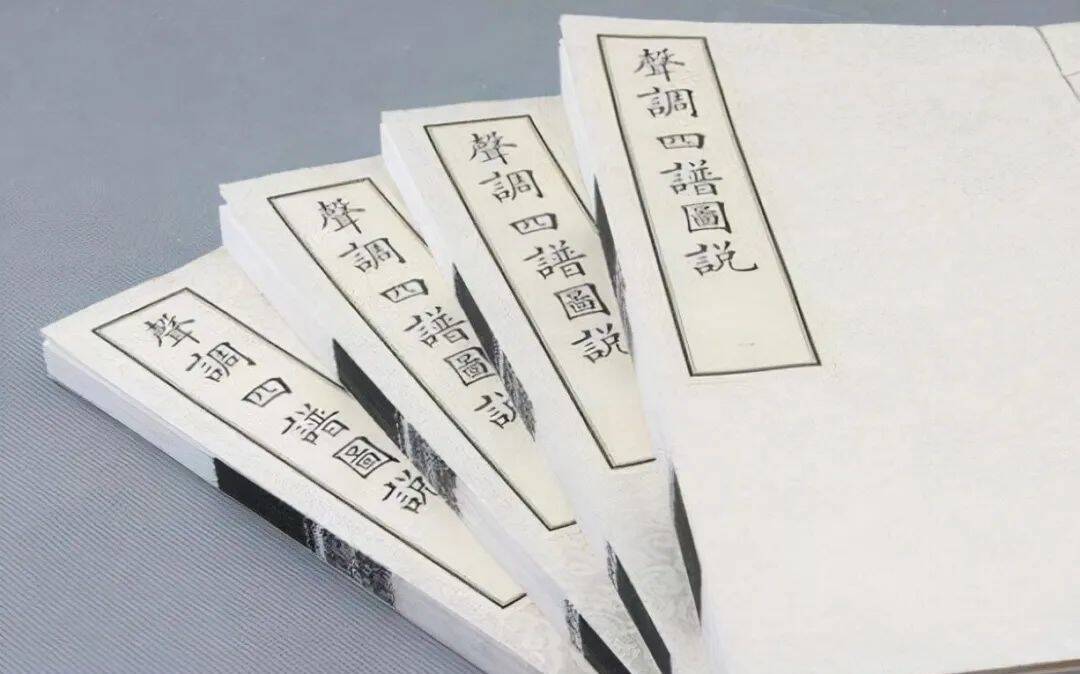 聲調四譜圖説
聲調四譜圖説
聲調四譜圖説
聲調四譜圖説